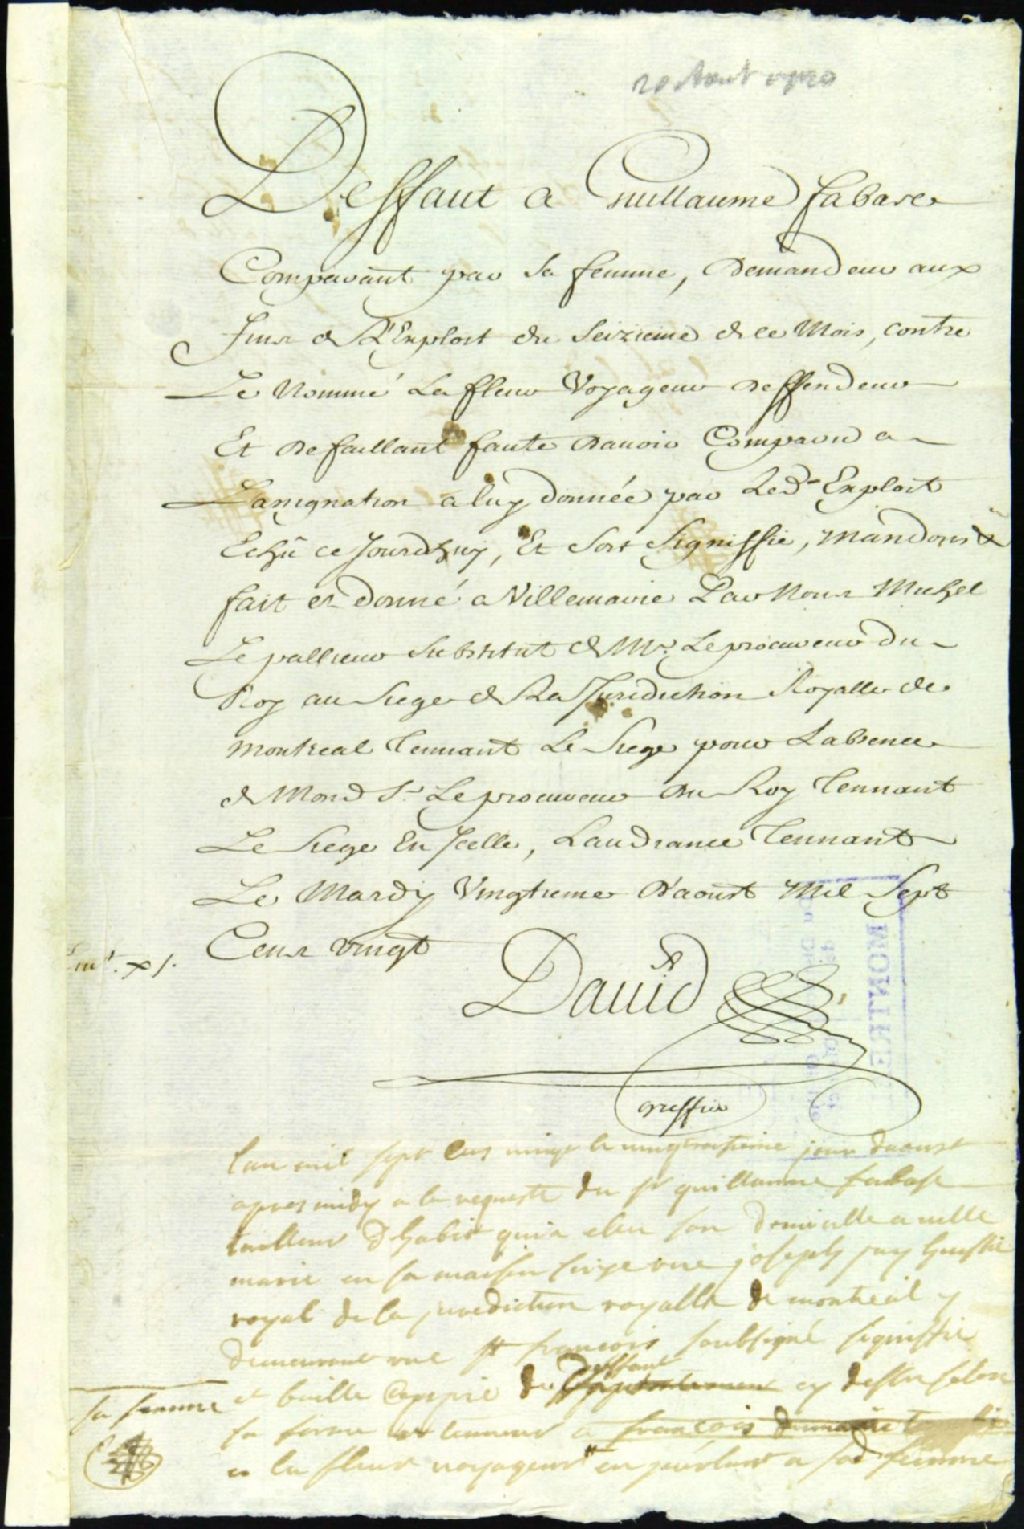 20 Aout 1720
Deffaut a Guillaume fabase
Comparant par sa femme, Demandeur aux
fins de L'Exploit du Seizieme de ce Mois, contre
Le Nommé La fleur Voyageur deffendeur
Et defaillant faute Davoir Comparu a
Lassignation a luy donnée par Led. Exploit
Echû ce Jourdhuy, Et Soit Signiffié, Mandons &
fait et donné a Villemarie Par Nous Michel
Lepallieur Substitut de Mr. Le procureur du
Roy au Siege de La Juridiction Royalle de
Montreal Tennant Le Siege pour Labsence
de Mond Sr. Le procureur du Roy Tennant
Le Siege En Icelle, Laudiance Tennant
Le Mardy Vingtieme D'aoust Mil Sept
Cens vingt
David
greffier
MONTRE
lan mil sept cens vingt le vingtroisieme jour daoust
apres midy a la requeste du sr guillaume fabase
tailleur dhabit qui a eleu son domicille a ville
marie en sa maison size rue joseph jay huissie
royal de la juridiction royalle de montreal y
demeurant rue st francois soubsigné signiffié
et baillé coppie du deffaut cy dessus selon
sa forme et teneur a francois
a la fleur voyageur en parlant a sad femme
sa femme